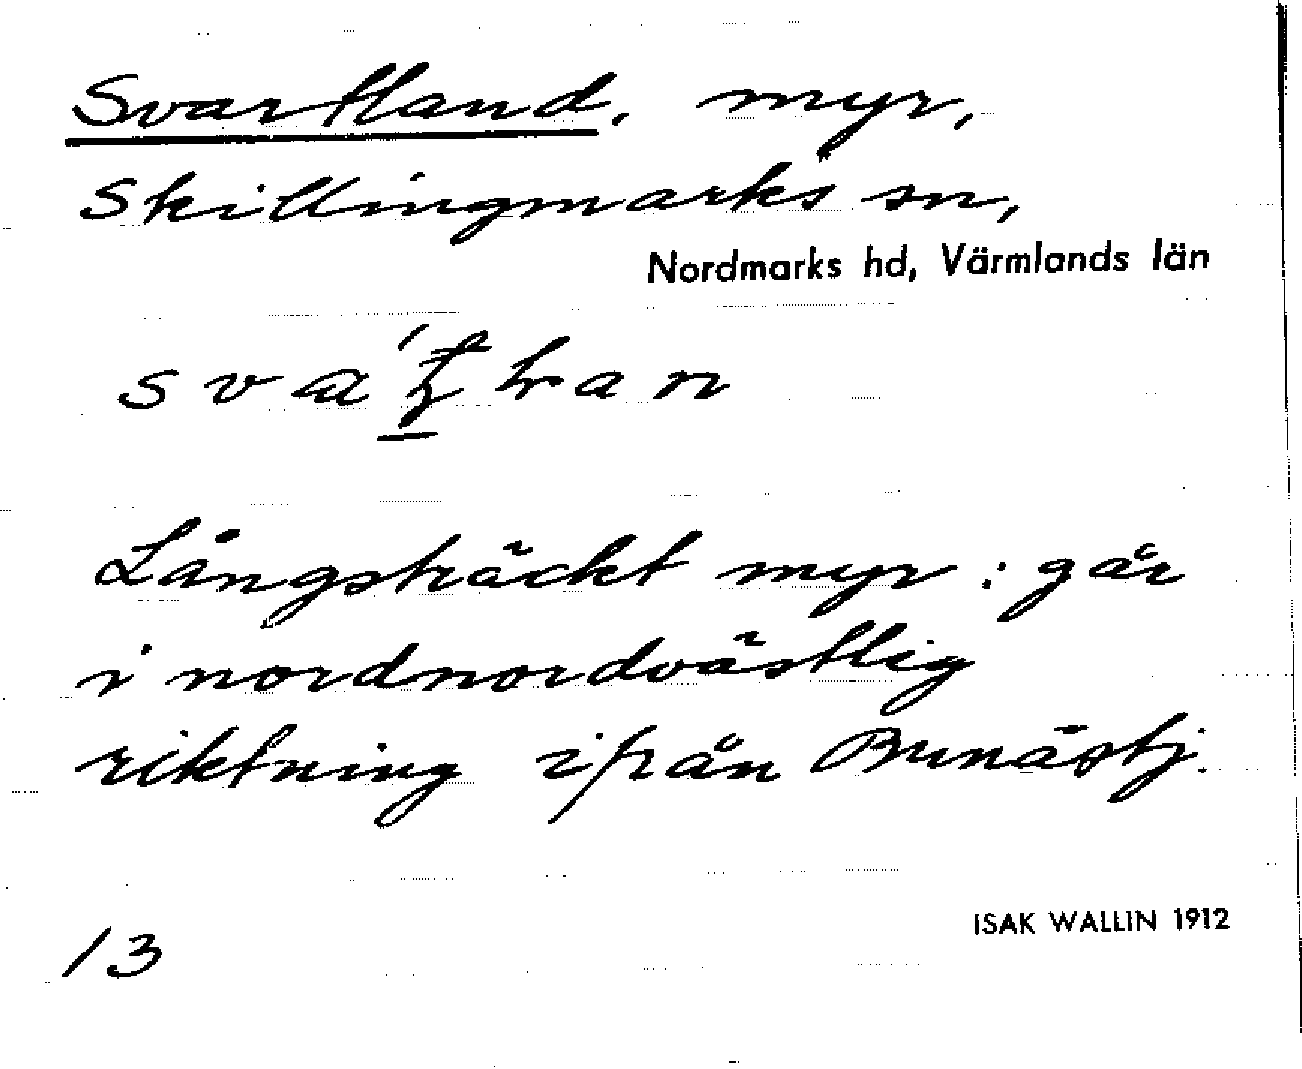 Svartland, myr,
Skillingmarks sn,
Nordmarks hd, Värmlands län
Långsträckt myr: går
i nordnordvästlig
riktning ifrån Bunästj.
ISAK WALLIN 1912
13